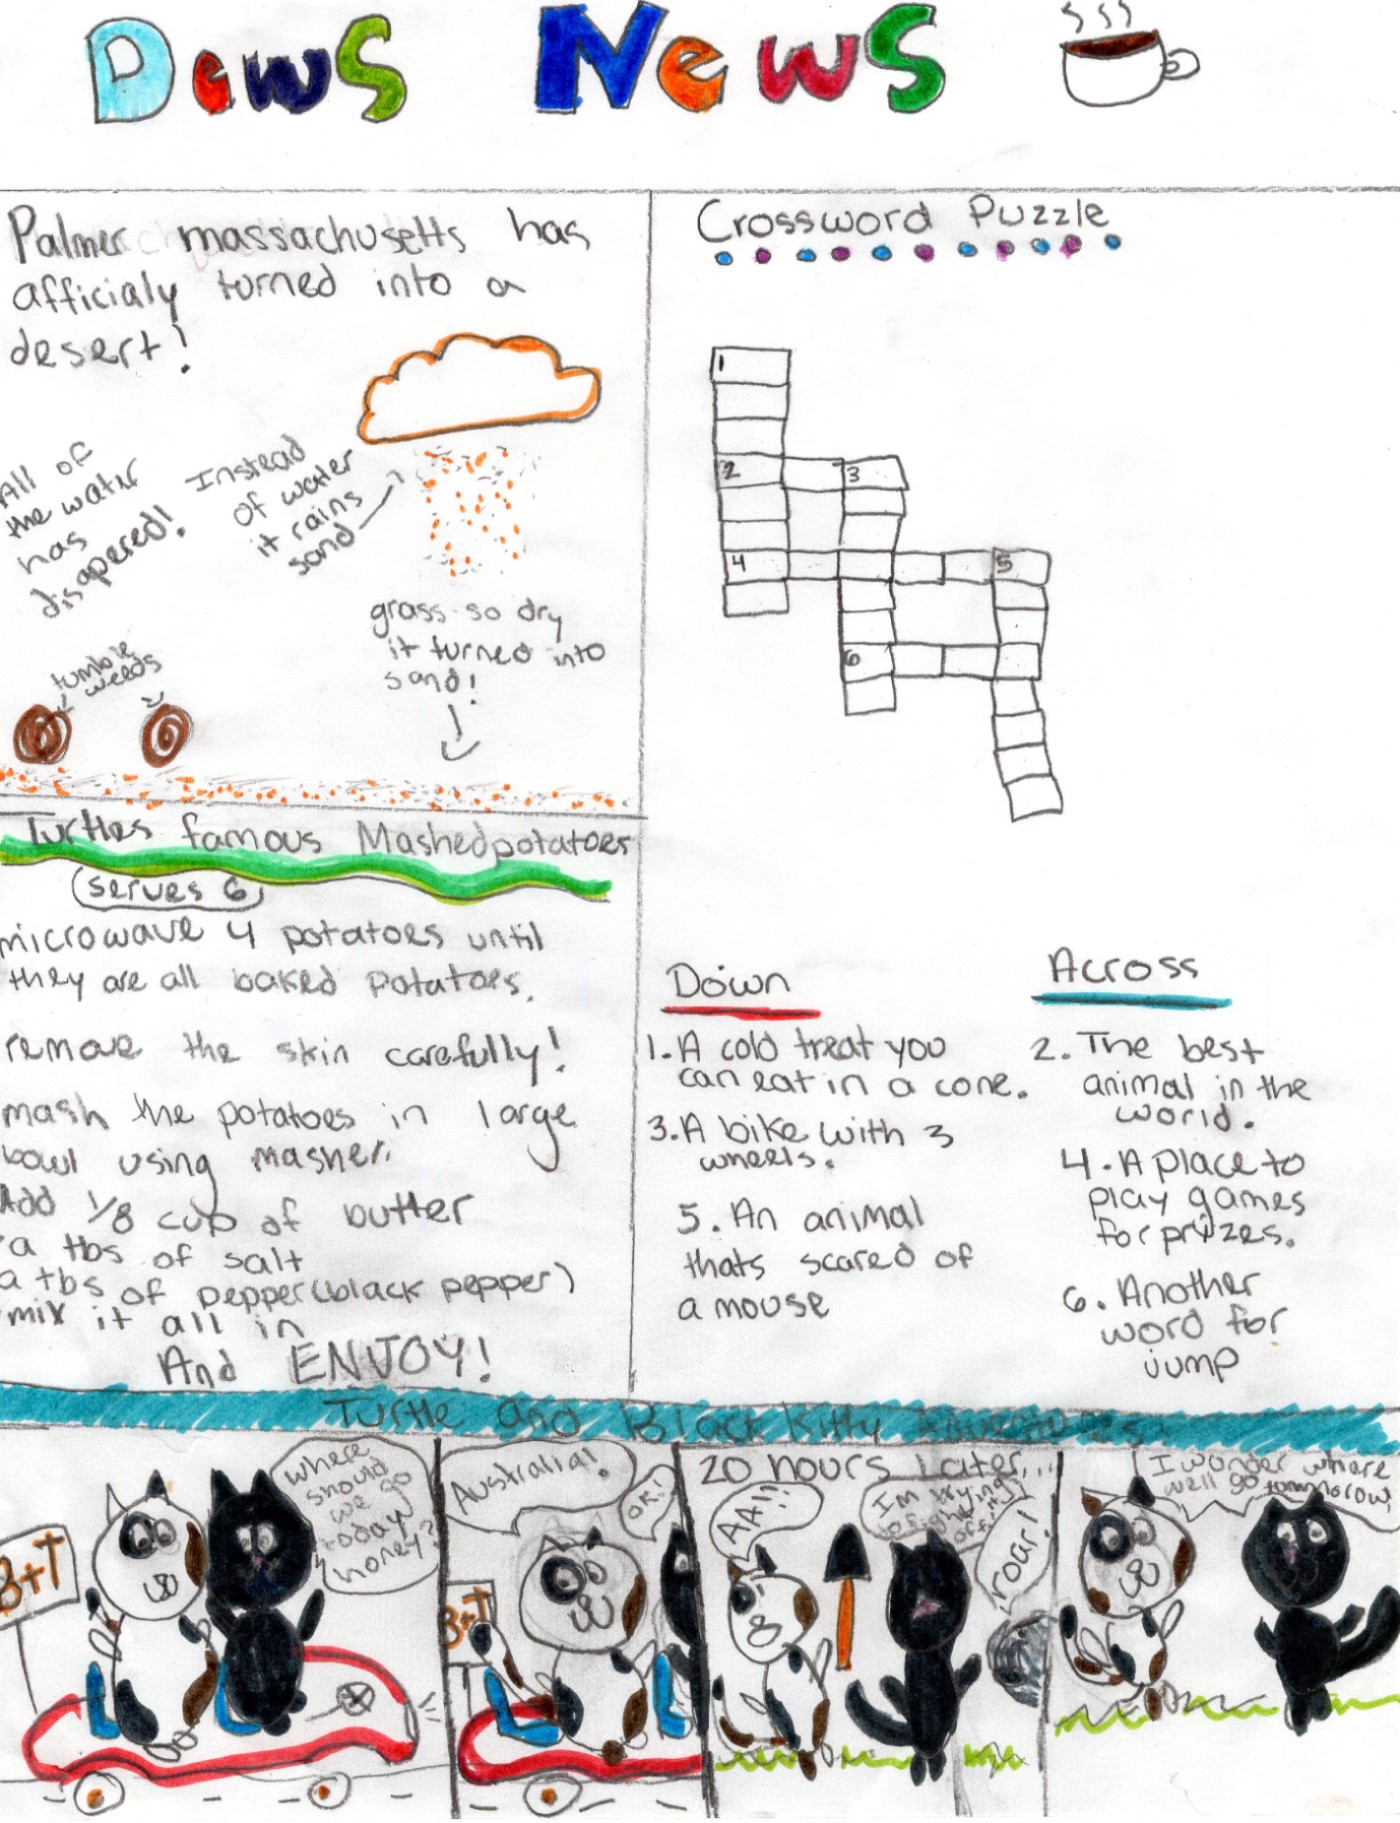 Dews News
Palmer massachusetts has
afficialy turned into a
desert!
All of
the water
has
disapered!
Instead
of water
it rains
sand
grass so dry
it turned into
sand!
tumble
weeds
Turtles famous Mashedpotatoes
serves 6
microwave 4 potatoes until
they are all baked potatoes.
remove the skin carefully!
mash the potatoes in large
bowl using masher.
Add 1/8 cup of butter
a tbs of salt
a tbs of pepper(black pepper)
mix it all in
And ENJOY!
Crossword Puzzle
1
2 3
4 5
6
Down
1. A cold treat you
can eat in a cone.
3. A bike with 3
wheels.
5. An animal
thats scared of
a mouse
Across
2. The best
animal in the
world.
4. A place to
play games
for prizes.
6. Another
word for
jump
Turtle and Black Kitty Adventures
where
should
we go
today
honey?
B+T
Australia!
OK!
B+T
20 hours later...
AA!!
I'm trying
to fight
it off!
roar!
I wonder where
we'll go tommorow.